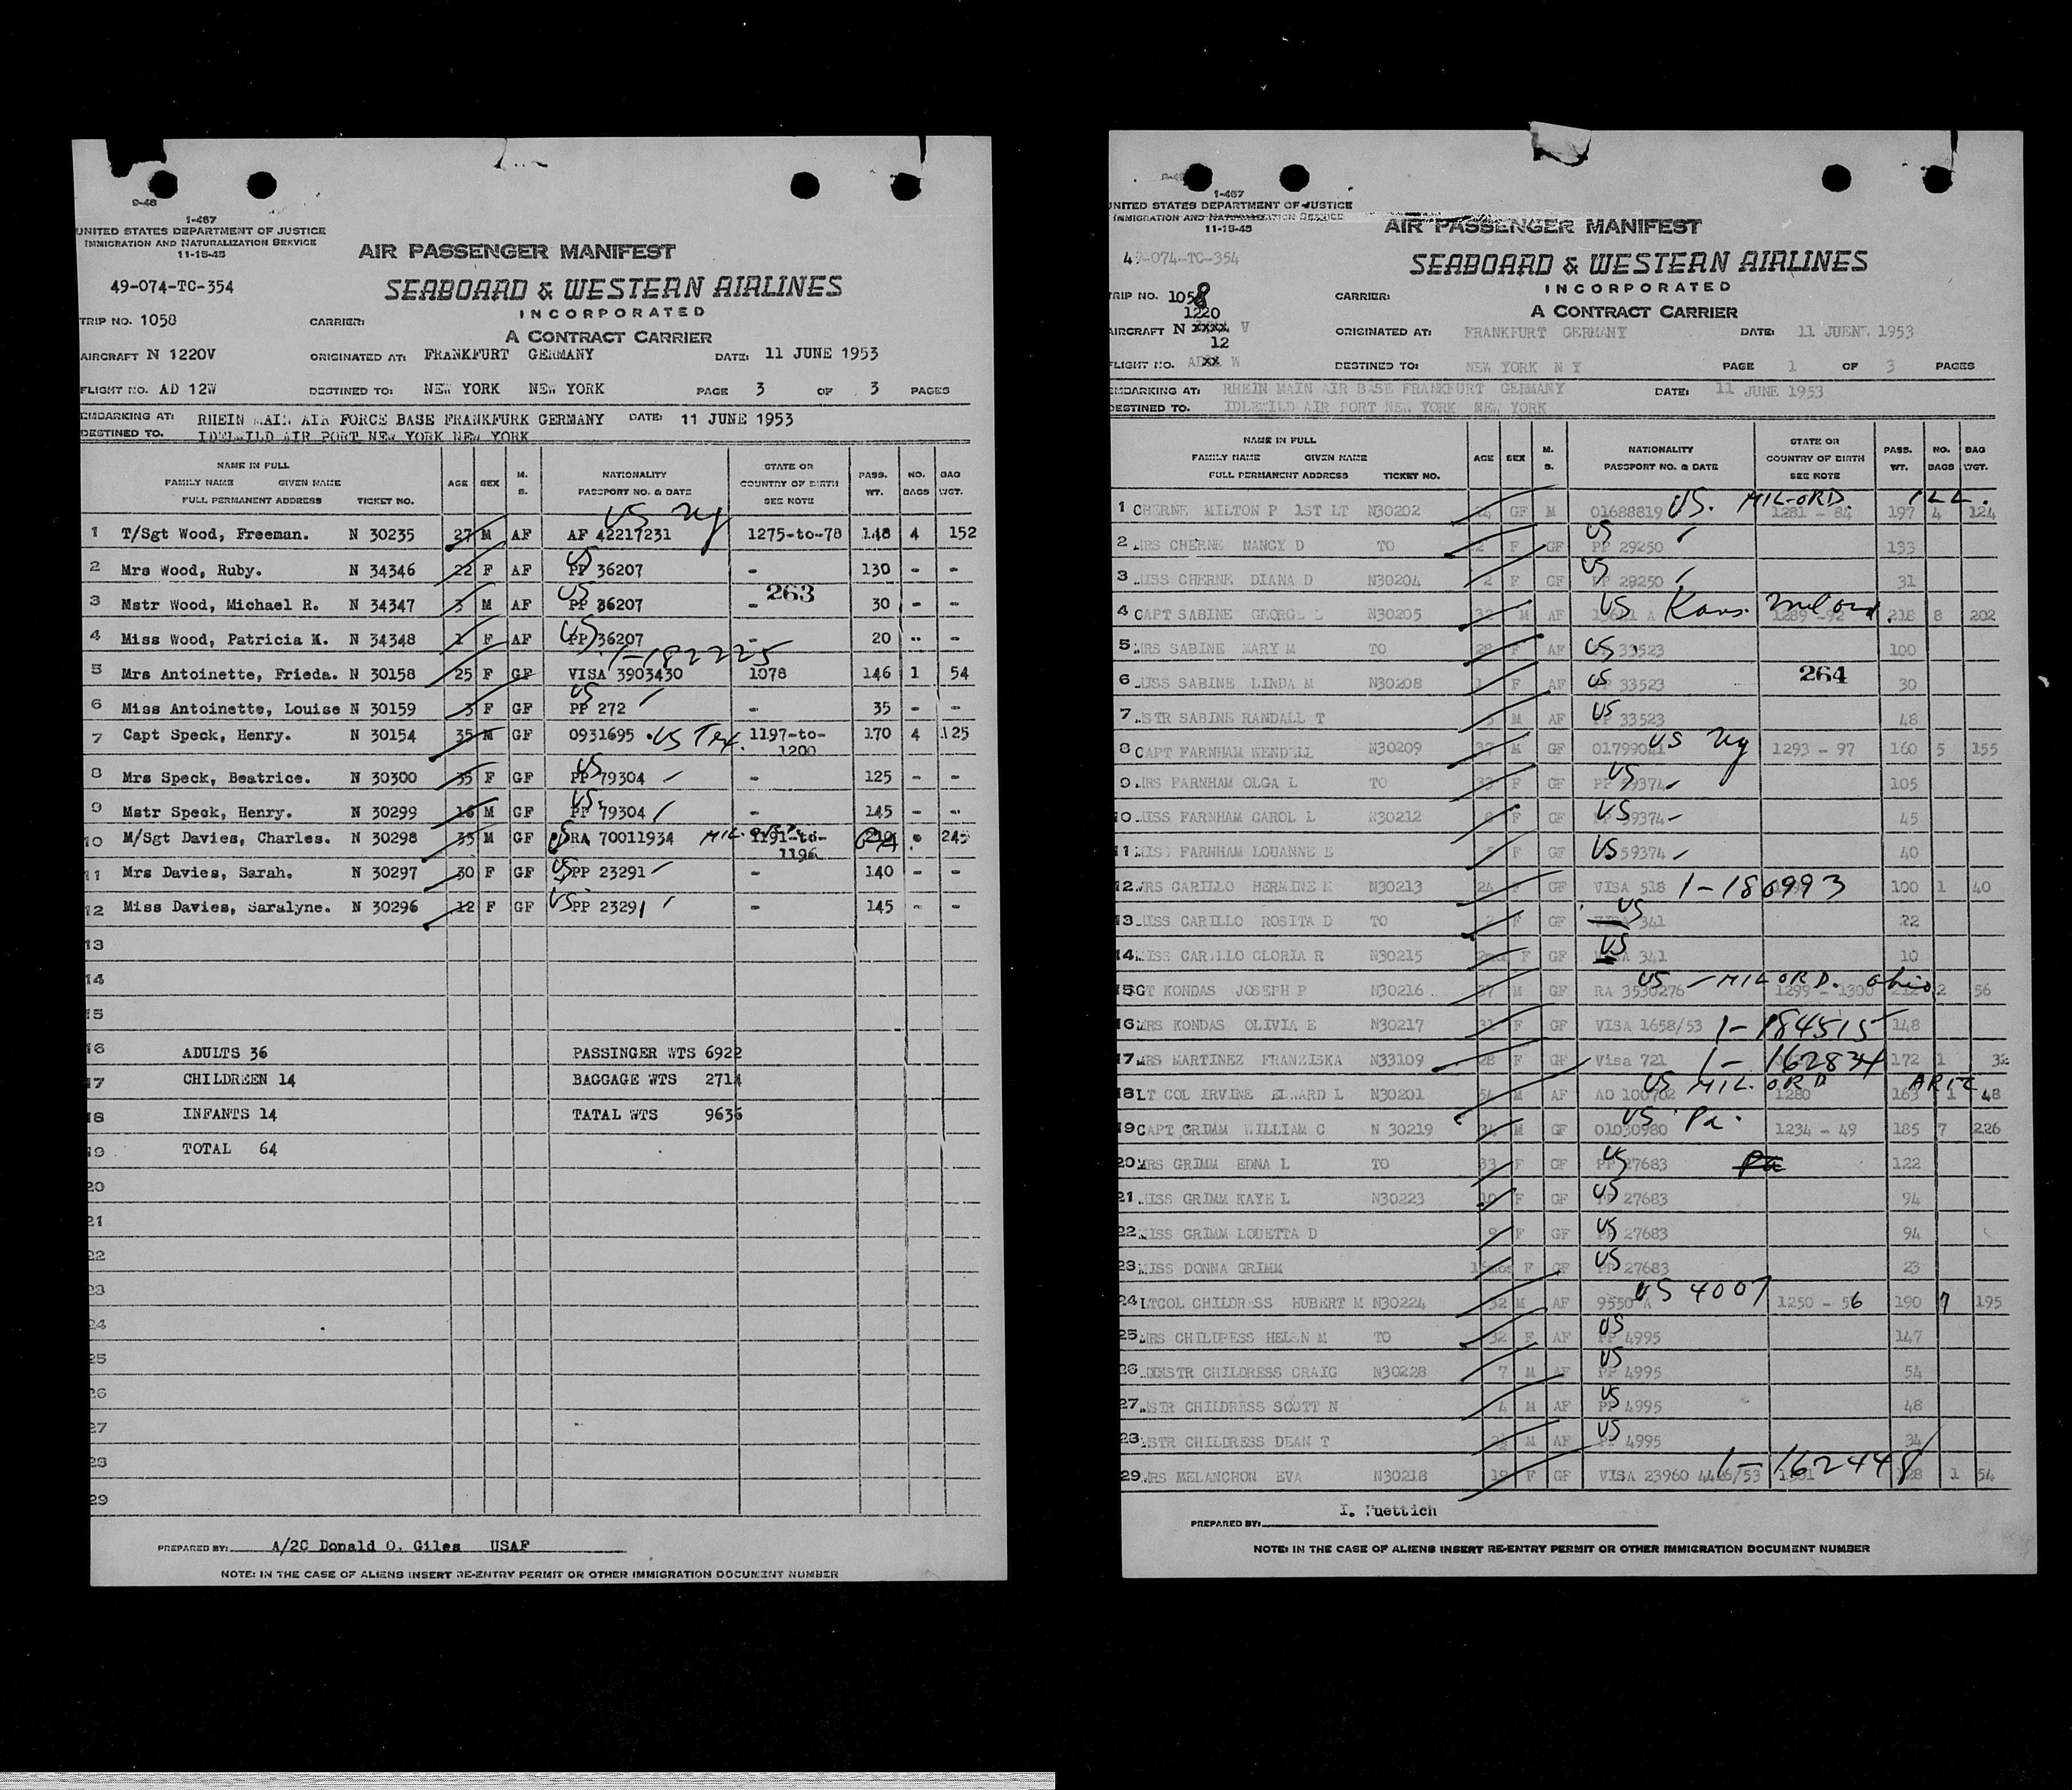 9-48
1-467
UNITED STATES DEPARTMENT OF JUSTICE
IMMIGRATION AND NATURALIZATION SERVICE
11-15-45
AIR PASSENGER MANIFEST
49-074-TC-354
SEABOARD & WESTERN AIRLINES
INCORPORATED
TRIP NO. 1058 CARRIER:
A CONTRACT CARRIER
AIRCRAFT N 1220V ORIGINATED AT: FRANKFURT GERMANY DATE: 11 JUNE 1953
FLIGHT NO. AD 12W DESTINED TO: NEW YORK NEW YORK PAGE 3 OF 3 PAGES
EMBARKING AT: RHEIN MAIN AIR FORCE BASE FRANKFURK GERMANY DATE: 11 JUNE 1953
DESTINED TO. IDELWILD AIR PORT NEW YORK NEW YORK
NAME IN FULL
FAMILY NAME GIVEN NAME
FULL PERMANENT ADDRESS TICKET NO. AGE SEX M. S. NATIONALITY PASSPORT NO. & DATE STATE OR COUNTRY OF BIRTH SEE NOTE PASS. WT. NO. BAGS BAG WGT.
US NY
1 T/Sgt Wood, Freeman. N 30235 27 M AF AF 42217231 1275-to-78 148 4 152
2 Mrs Wood, Ruby. N 34346 22 F AF US PP 36207 - 130 - -
263
3 Mstr Wood, Michael R. N 34347 3 M AF US PP 36207 - 30 - -
4 Miss Wood, Patricia K. N 34348 1 F AF US PP 36207 - 20 -- -
1-182225
5 Mrs Antoinette, Frieda. N 30158 25 F GF VISA 3903430 1078 146 1 54
6 Miss Antoinette, Louise N 30159 3 F GF US PP 272 - 35 - -
7 Capt Speck, Henry. N 30154 35 M GF 0931695 US Tex. 1197-to-1200 170 4 125
8 Mrs Speck, Beatrice. N 30300 35 F GF US PP 79304 - 125 - -
9 Mstr Speck, Henry. N 30299 16 M GF US PP 79304 - 145 - -
10 M/Sgt Davies, Charles. N 30298 35 M GF US RA 70011934 1191-to-1196 245
11 Mrs Davies, Sarah. N 30297 30 F GF US PP 23291 - 140 - -
12 Miss Davies, Saralyne. N 30296 12 F GF US PP 23291 - 145 - -
13
14
15
16 ADULTS 36 PASSINGER WTS 6922
17 CHILDREEN 14 BAGGAGE WTS 2714
18 INFANTS 14 TATAL WTS 9636
19 TOTAL 64
20
21
22
23
24
25
26
27
28
29
PREPARED BY: A/2C Donald O. Giles USAF
NOTE: IN THE CASE OF ALIENS INSERT RE-ENTRY PERMIT OR OTHER IMMIGRATION DOCUMENT NUMBER
1-467
UNITED STATES DEPARTMENT OF JUSTICE
IMMIGRATION AND NATURALIZATION SERVICE
11-15-45
AIR PASSENGER MANIFEST
49-074-TC-354
SEABOARD & WESTERN AIRLINES
INCORPORATED
TRIP NO. 1058 CARRIER:
A CONTRACT CARRIER
1220
AIRCRAFT N xxxx V ORIGINATED AT: FRANKFURT GERMANY DATE: 11 JUENE 1953
12
FLIGHT NO. AD xx W DESTINED TO: NEW YORK N Y PAGE 1 OF 3 PAGES
EMBARKING AT: RHEIN MAIN AIR BASE FRANKFURT GERMANY DATE: 11 JUNE 1953
DESTINED TO. IDLEWILD AIR PORT NEW YORK NEW YORK
NAME IN FULL
FAMILY NAME GIVEN NAME
FULL PERMANENT ADDRESS TICKET NO. AGE SEX M. S. NATIONALITY PASSPORT NO. & DATE STATE OR COUNTRY OF BIRTH SEE NOTE PASS. WT. NO. BAGS BAG WGT.
US. MIL-ORD. ILL.
1 CHERNE MILTON P 1ST LT N30202 GF M 01688819 1281 - 84 197 4 124
2 MRS CHERNE NANCY D TO F GF US PP 29250 133
3 MISS CHERNE DIANA D N30204 2 F GF US PP 29250 31
4 CAPT SABINE GEORGE L N30205 32 M AF US Kans. Mil ord 1289-92 218 8 202
5 MRS SABINE MARY M TO 28 F AF US 33523 100
264
6 MISS SABINE LINDA M N30208 1 F AF US 33523 30
7 MSTR SABINE RANDALL T M AF US PP 33523 48
8 CAPT FARNHAM WENDELL N30209 37 M GF US NY 1293 - 97 160 5 155
9 MRS FARNHAM OLGA L TO 33 F GF US PP 59374 105
10 MISS FARNHAM CAROL L N30212 F GF US 59374 45
11 MISS FARNHAM LOUANNE E 5 F GF US 59374 40
12 MRS CARILLO HERMINE M N30213 24 F GF VISA 518 1-180993 100 1 40
13 MISS CARILLO ROSITA D TO 2 F GF US VISA 341 22
14 MISS CARILLO GLORIA R N30215 F GF US 341 10
US - MIL ORD. Ohio
15 SGT KONDAS JOSEPH P N30216 37 M GF RA 3530276 1299 - 1300 212 2 56
16 MRS KONDAS OLIVIA E N30217 31 F GF VISA 1658/53 1-184515 148
17 MRS MARTINEZ FRANZISKA N33109 28 F GF Visa 721 1-162834 172 1 32
US MIL. ORD
18 LT COL IRVINE EDWARD L N30201 54 M AF AO 100702 1280 163 1 48
US Pa.
19 CAPT GRIMM WILLIAM C N 30219 34 M GF 01030980 1234 - 49 185 7 226
20 MRS GRIMM EDNA L TO 33 F GF US PP 27683 Pa 122
21 MISS GRIMM KAYE L N30223 10 F GF US PP 27683 94
22 MISS GRIMM LOUETTA D 9 F GF US PP 27683 94
23 MISS DONNA GRIMM F GF US PP 27683 23
US 4007
24 LTCOL CHILDRESS HUBERT M N30224 32 M AF 9550 A 1250 - 56 190 7 195
25 MRS CHILDRESS HELEN M TO 32 F AF US PP 4995 147
26 MSTR CHILDRESS CRAIG N30228 7 M AF US PP 4995 54
27 MSTR CHILDRESS SCOTT N 4 M AF US PP 4995 48
28 MSTR CHILDRESS DEAN T M AF US PP 4995 34
1-162448
29 MRS MELANCHON EVA N30218 19 F GF VISA 23960 128 1 54
PREPARED BY:
NOTE: IN THE CASE OF ALIENS INSERT RE-ENTRY PERMIT OR OTHER IMMIGRATION DOCUMENT NUMBER